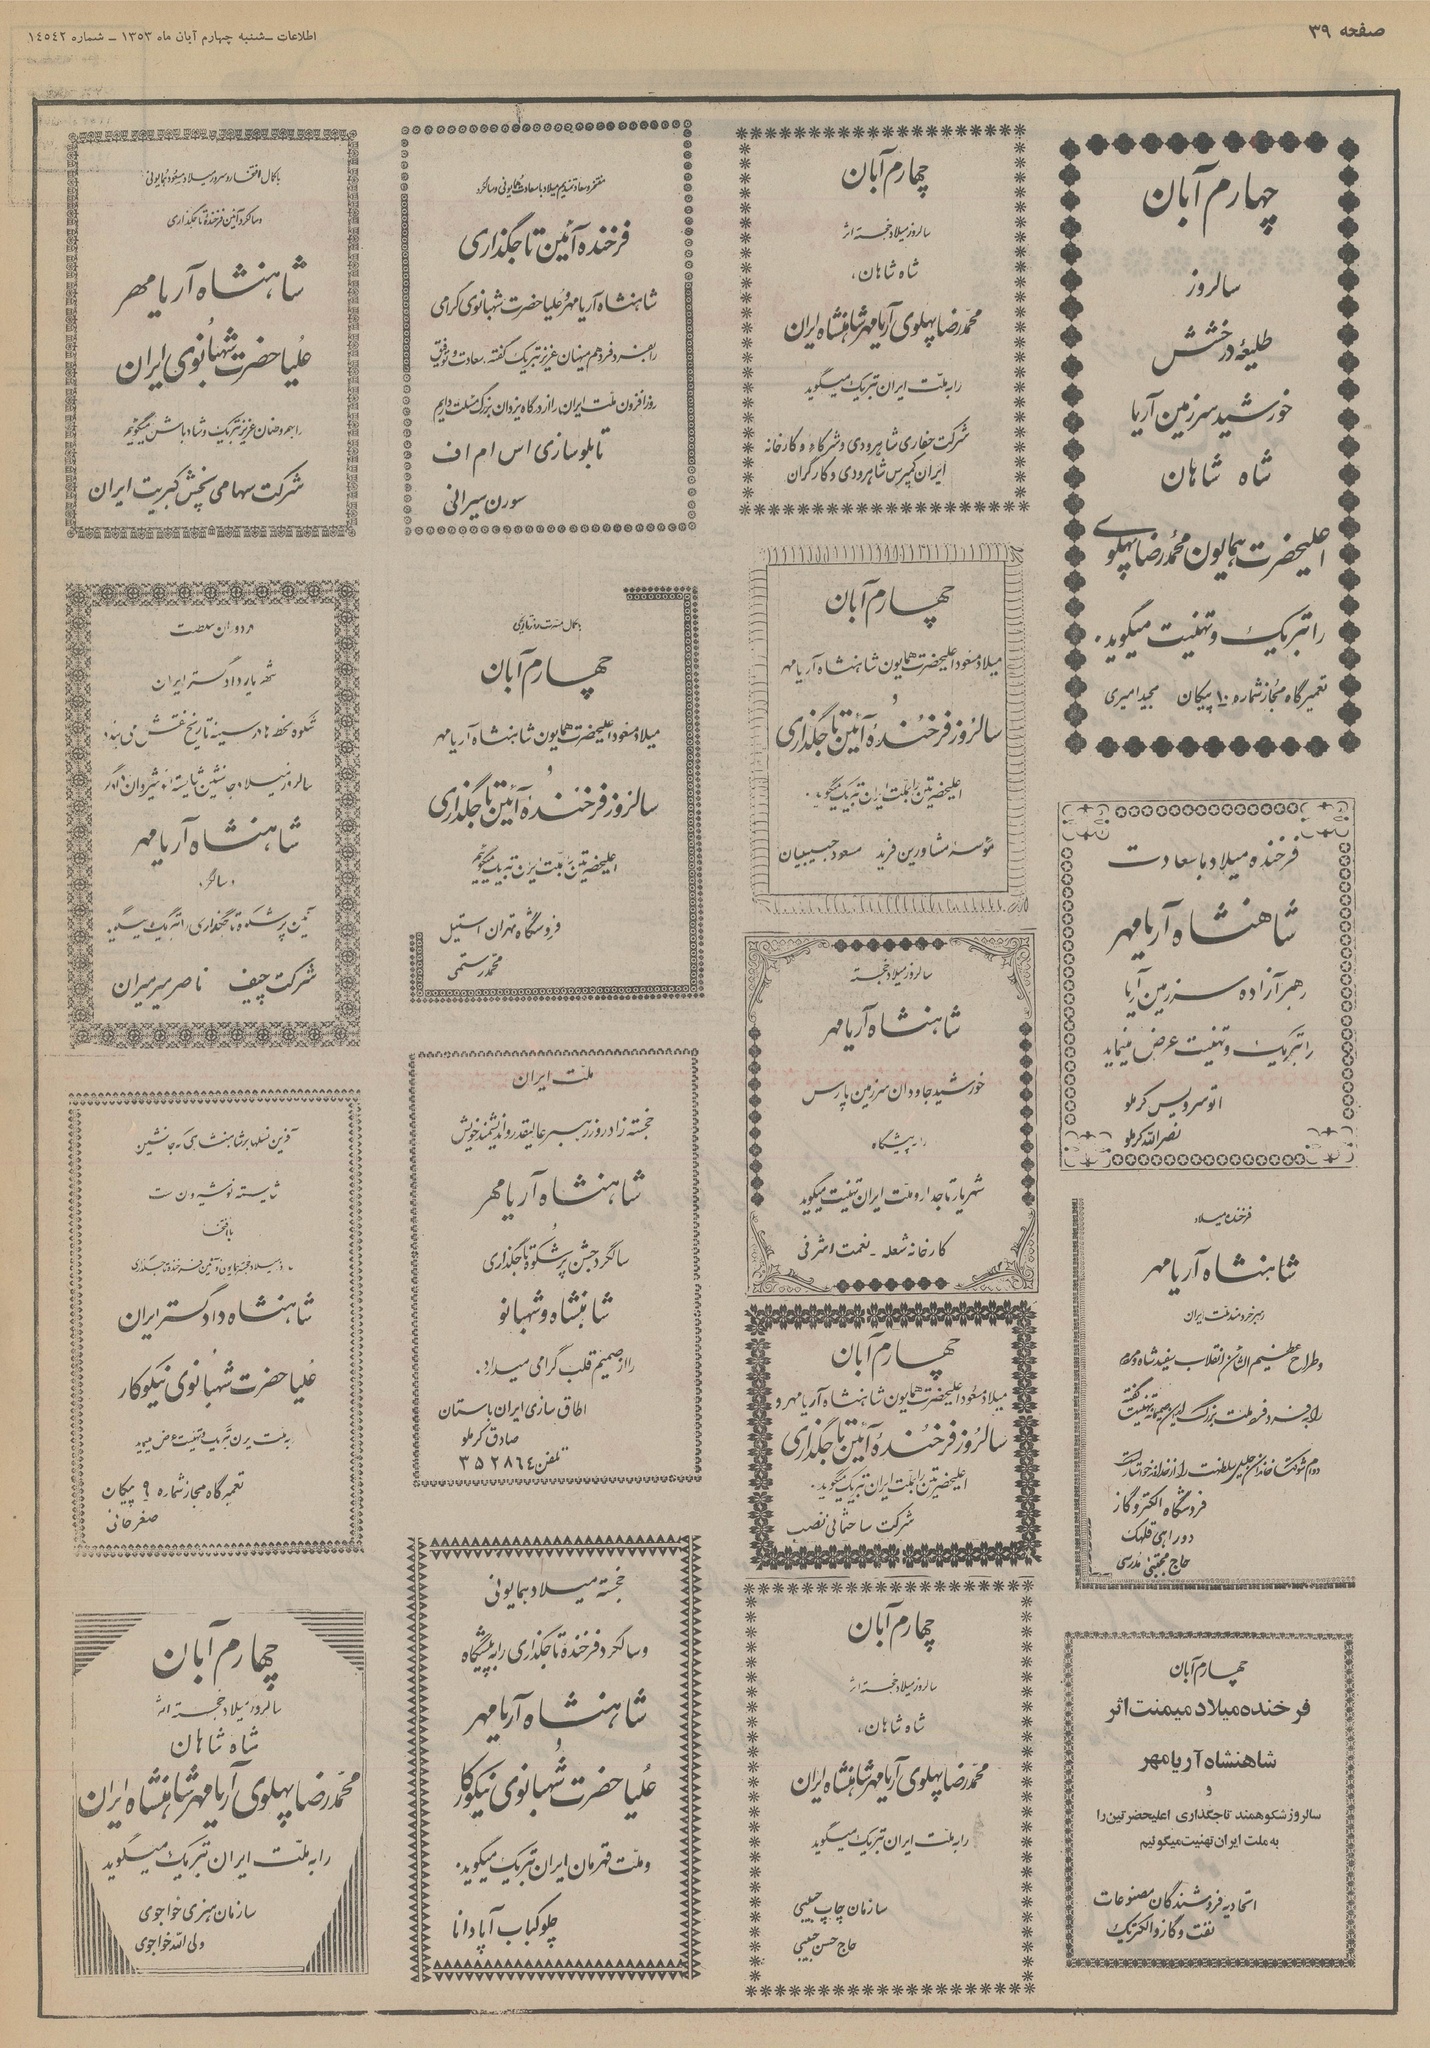 صفحه ۳۹
اطلاعات ـ شنبه چهارم آبان ماه ۱۳۵۳ ـ شماره ۱٤٥٤۲
چهارم آبان
سالروز
طلیعه درخشش
خورشید سرزمین آریا
شاه شاهان
اعلیحضرت همایون محمدرضا پهلوی
را تبریک و تهنیت میگوید.
تعمیرگاه مجاز شماره ۱۰ پیکان مجید امیری
فرخنده میلاد با سعادت
شاهنشاه آریامهر
رهبر آزاده سرزمین آریا
را تبریک و تهنیت عرض مینماید
اتوسرویس کرملو
نصرالله کرملو
فرخنده میلاد
شاهنشاه آریامهر
رهبر خردمند ملت ایران
و طراح عظیم الشأن انقلاب سفید شاه و مردم
فروشگاه الکتروگاز
دوراهی قلهک
حاج مجتبی مدرسی
چهارم آبان
فرخنده میلاد میمنت اثر
شاهنشاه آریامهر
و
سالروز شکوهمند تاجگذاری اعلیحضرتین را
به ملت ایران تهنیت میگوئیم
اتحادیه فروشندگان مصنوعات
نفت و گاز و الکتریک
چهارم آبان
سالروز میلاد خجسته اثر
شاه شاهان،
محمدرضا پهلوی آریامهر شاهنشاه ایران
را به ملت ایران تبریک میگوید
شرکت حفاری شاهرودی و شرکاء و کارخانه
ایران گیربکس شاهرودی و کارگران
چهارم آبان
میلاد مسعود اعلیحضرت همایون شاهنشاه آریامهر
و
سالروز فرخنده آئین تاجگذاری
اعلیحضرتین را بملت ایران تبریک میگوید.
مؤسسه مشاورین فرید مسعود حبیبیان
سالروز میلاد خجسته
شاهنشاه آریامهر
خورشید جاودان سرزمین پارس
را به پیشگاه
شهریار تاجدار و ملت ایران تهنیت میگوید
کارخانه شعله ـ نعمت اشرفی
چهارم آبان
میلاد مسعود اعلیحضرت همایون شاهنشاه آریامهر و
سالروز فرخنده آئین تاجگذاری
اعلیحضرتین را بملت ایران تبریک میگوید.
شرکت ساختمانی نصب
چهارم آبان
سالروز میلاد خجسته اثر
شاه شاهان،
محمدرضا پهلوی آریامهر شاهنشاه ایران
را به ملت ایران تبریک میگوید
سازمان چاپ حبیبی
حاج حسن حبیبی
فرخنده آئین تاجگذاری
شاهنشاه آریامهر و علیا حضرت شهبانوی گرامی
را بفرد فرد هم میهنان عزیز تبریک گفته. سعادت و توفیق
روزافزون ملت ایران را از درگاه یزدان بزرگ مسئلت داریم
تابلوسازی اس ام اف
سورن سیرانی
چهارم آبان
میلاد مسعود اعلیحضرت همایون شاهنشاه آریامهر
و
سالروز فرخنده آئین تاجگذاری
اعلیحضرتین را بملت ایران تبریک میگوئیم
فروشگاه تهران استیل
محمد رستمی
ملت ایران
خجسته زادروز رهبر عالیقدر و اندیشمند خویش
شاهنشاه آریامهر
و
سالگرد جشن پرشکوه تاجگذاری
شاهنشاه و شهبانو
را از صمیم قلب گرامی میدارد.
اطاق سازی ایران باستان
صادق کرملو
تلفن ۳٥۲۸٦٤
خجسته میلاد همایونی
و سالگرد فرخنده تاجگذاری را به پیشگاه
شاهنشاه آریامهر
و
علیا حضرت شهبانوی نیکوکار
و ملت قهرمان ایران تبریک میگوید.
چلوکباب آپادانا
با کمال افتخار و سرور میلاد مسعود همایونی
و سالگرد آئین فرخنده تاجگذاری
شاهنشاه آریامهر
و
علیا حضرت شهبانوی ایران
را بهموطنان عزیز تبریک و شادباش میگوئیم
شرکت سهامی پخش کبریت ایران
در دوران سلطنت
شهریار دادگستر ایران
سالروز میلاد جانشین شایسته انوشیروان دادگر
شاهنشاه آریامهر
و سالگرد
آئین پرشکوه تاجگذاری را تبریک میگوید.
شرکت چیف ناصر میرمیران
شایسته نوشیروان است
شاهنشاه دادگستر ایران
و
علیا حضرت شهبانوی نیکوکار
تعمیرگاه مجاز شماره ۹ پیکان
صفر خانی
چهارم آبان
سالروز میلاد خجسته اثر
شاه شاهان
محمدرضا پهلوی آریامهر شاهنشاه ایران
را به ملت ایران تبریک میگوید
سازمان هنری خواجوی
ولی الله خواجوی